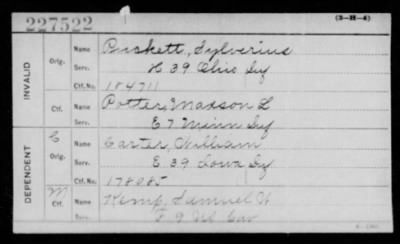 227522
(3-H-4)
INVALID
Orig.
Name Puskett, Sylverius
Serv. H 39 Ohio Inf
Ctf. No. 184711
Ctf.
Name Potter, Maxson L
Serv. E 7 Minn Inf
DEPENDENT
C
Orig.
Name Carter, William
Serv. E 39 Iowa Inf
Ctf. No. 178085
M
Ctf.
Name Kemp, Samuel W
Serv. F 9 Ill Cav